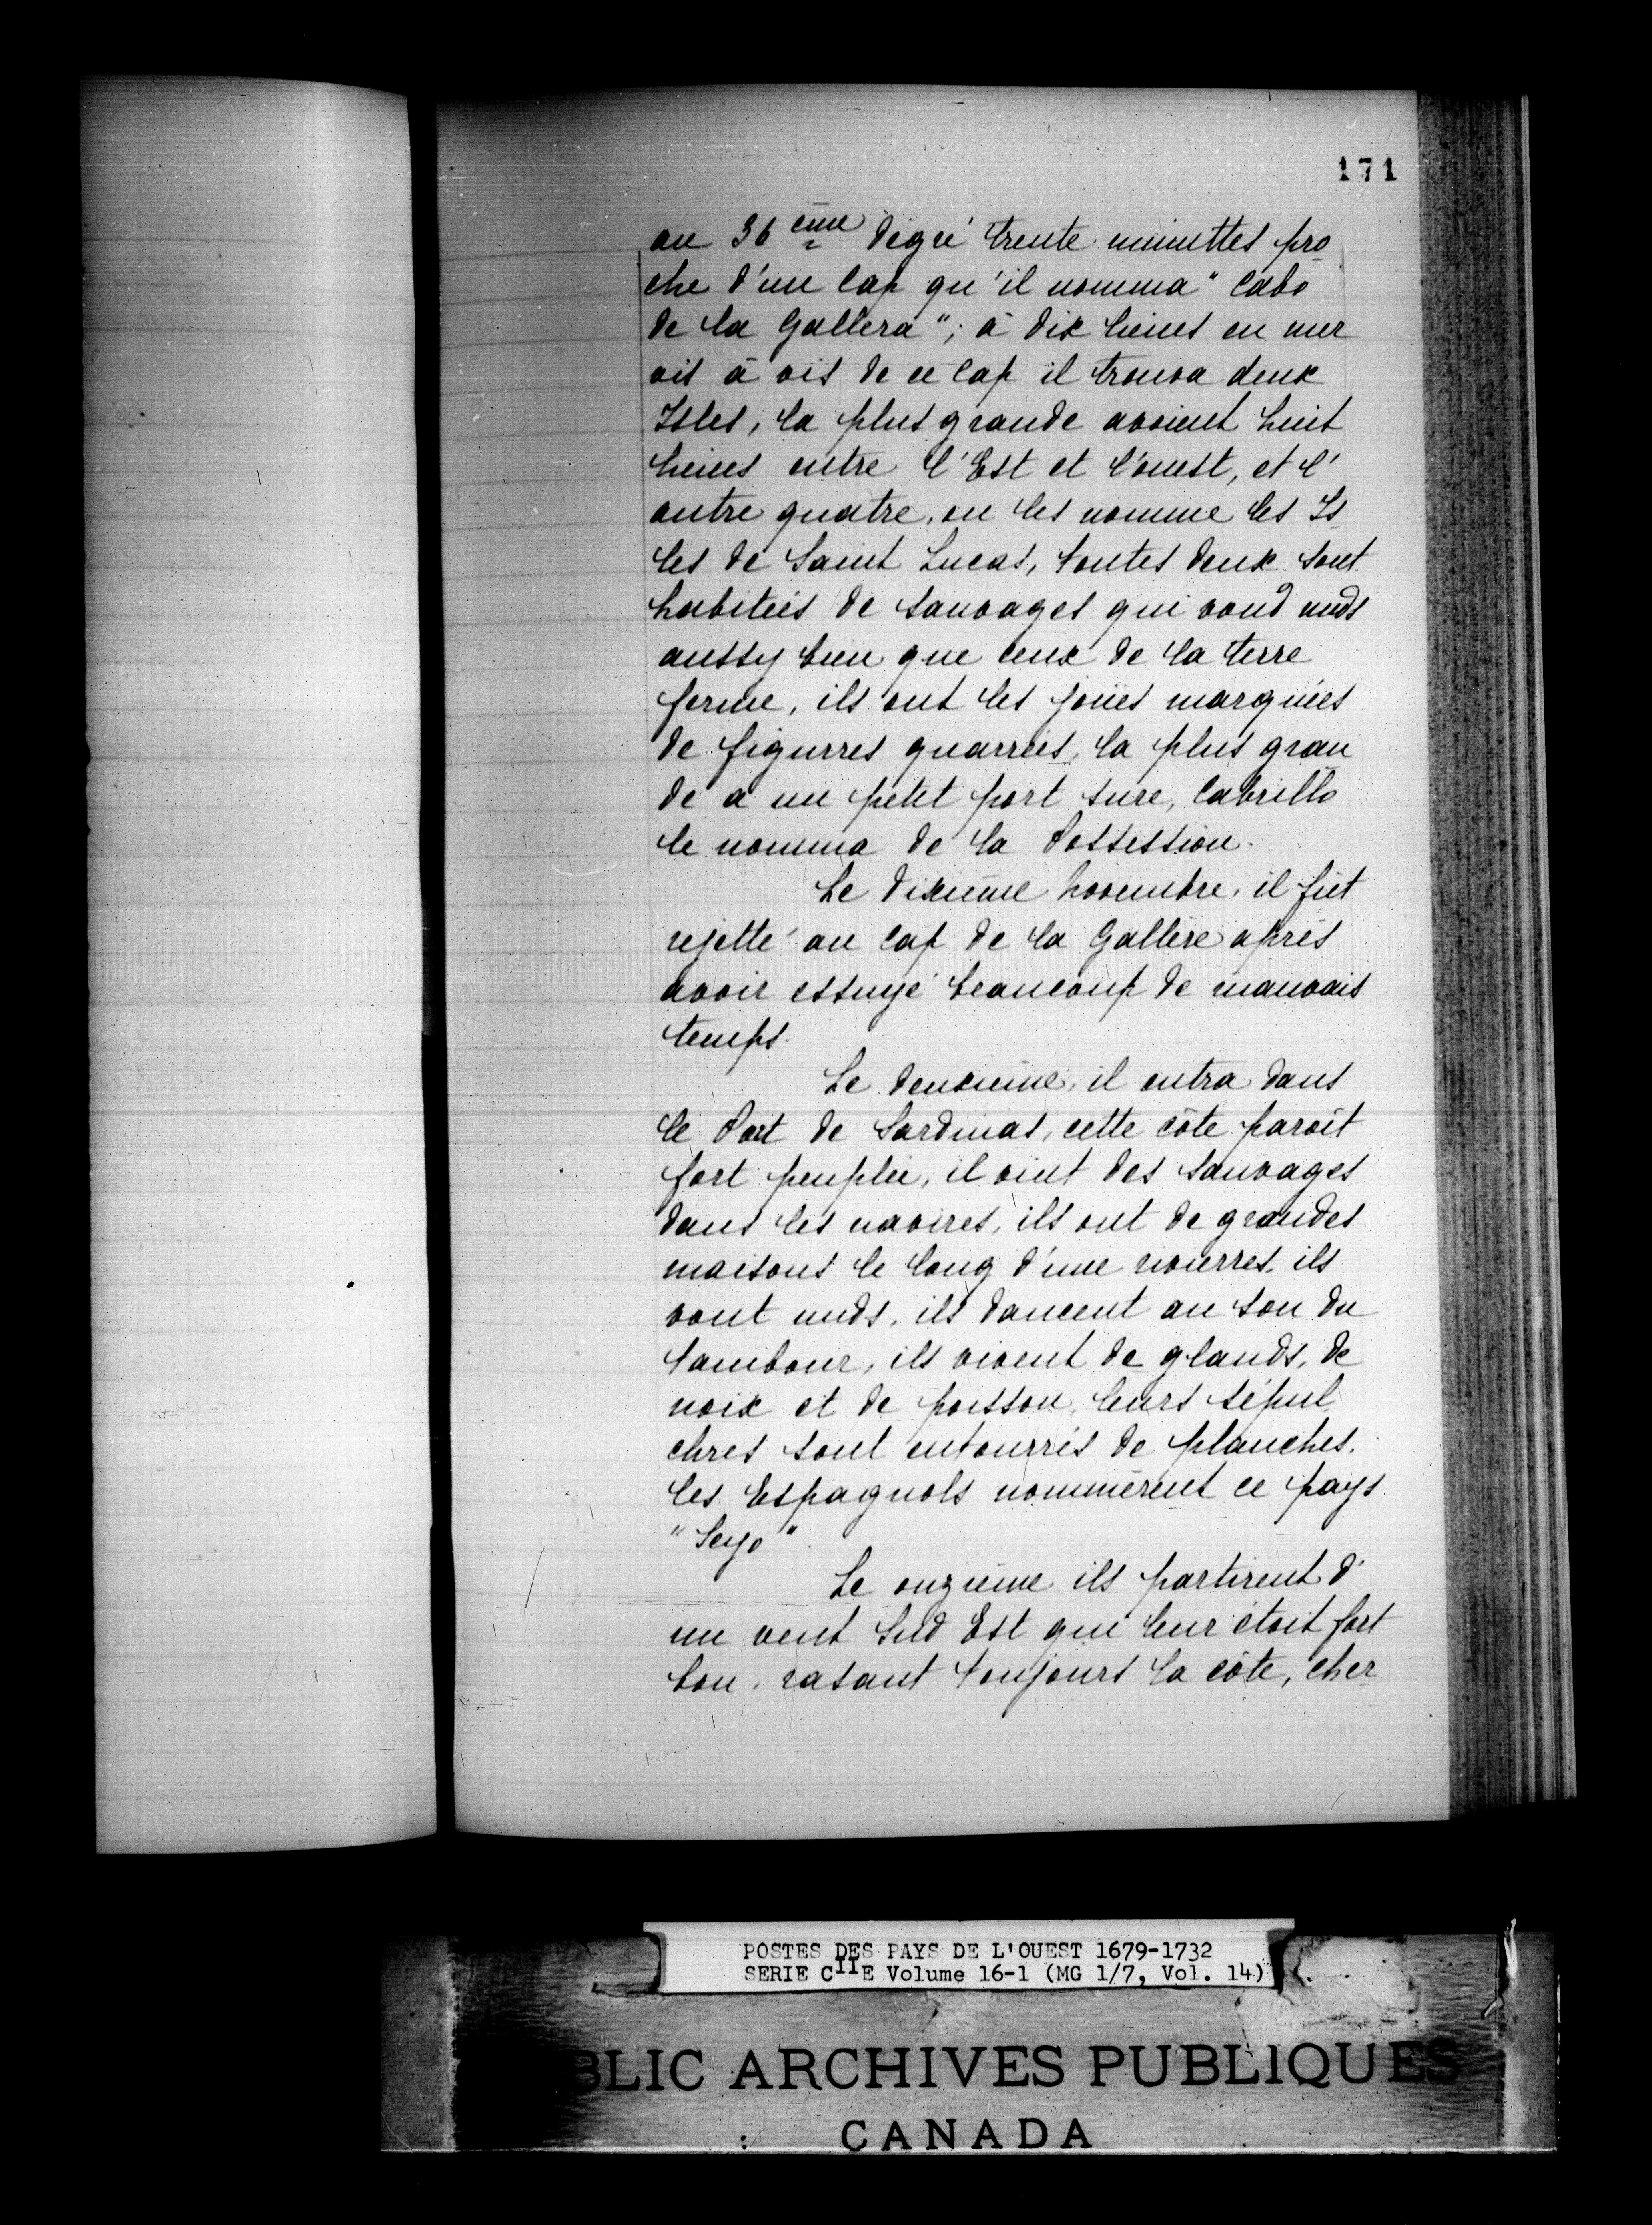 171
au 36 ème degré trente minuttes pro
che d'un Cap qu'il nomma "Cabo
de la Gallera"; à dix lieues en mer
vis à vis de ce Cap il trouva deux
Isles, la plus grande avoient huit
lieues entre l'Est et l'ouest, et l'
autre quatre, on les nomme les Is
les de Saint Lucas, toutes deux sont
habitées de sauvages qui vond nuds
aussy bien que ceux de la terre
ferme, ils ont les joües marquées
de figurres quarrées, la plus gran
de a un petit port sure, Cabrillo
le nomma de la Possession.
Le dixième Novembre, il fut
rejetté au Cap de la Gallère après
avoir essuyé beaucoup de mauvais
temps.
Le deuxième, il entra dans
le Port de Sardinas, cette côte paroît
fort peuplée, il vint des sauvages
dans les navires, ils ont de grandes
maisons le long d'une rivierres, ils
vont nuds, ils dancent au son du
tambour, ils vivent de glands, de
noix et de poisson, leurs sépul
chres sont entourrés de planches.
les Espagnols nommèrent ce pays
"Seyo".
Le onzième ils partirent d'
un vent Sud Est qui leur étoit fort
bon, rasant toujours la côte, cher
POSTES DES PAYS DE L'OUEST 1679-1732
SERIE CIIE Volume 16-1 (MG 1/7, Vol. 14)
BLIC ARCHIVES PUBLIQUES
CANADA